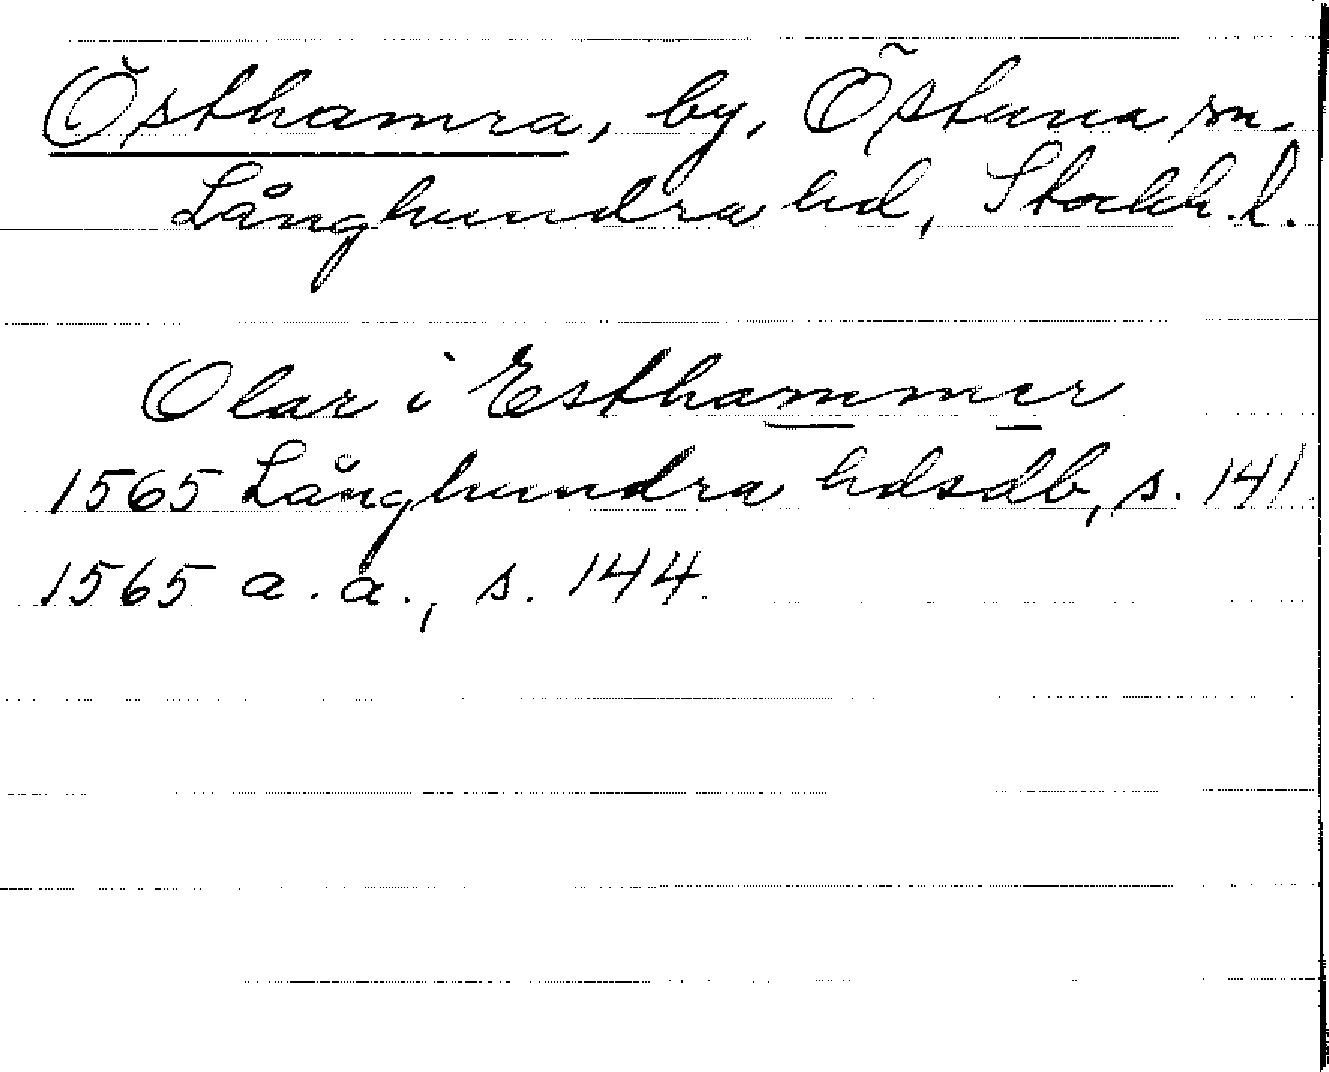 Östhamra, by, Östuna sn.
Långhundra hd, Stockh. l.
Olar i Esthammer
1565 Långhundra hdsdb, s. 141.
1565 a. a., s. 144.